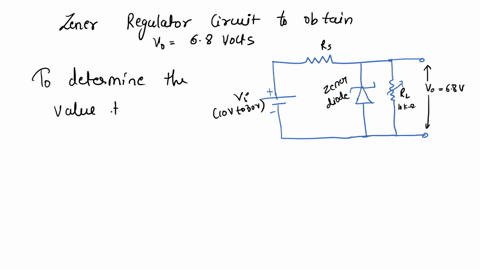 Zener Regulator Circuit to obtain
V₀ = 6.8 Volts
To determine the
value t
Rs
Vi
(10V to 30V)
+
-
Zener
diode
RL
1kΩ
V₀ = 6.8V